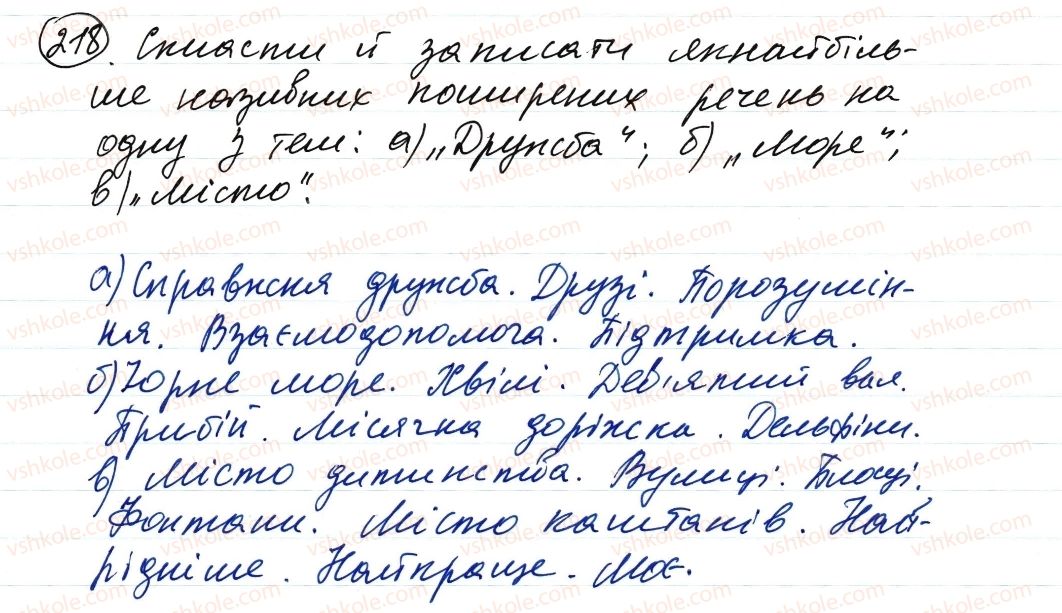 218. Скласти й записати якнайбіль-
ше називних поширених речень на
одну з тем: а) „Дружба"; б) „Море";
в) „Місто".
а) Справжня дружба. Друзі. Порозумін-
ня. Взаємодопомога. Підтримка.
б) Чорне море. Хвілі. Дев'ятий вал.
Прибій. Місячна доріжка. Дельфіни.
в) Місто дитинства. Вулиці. Площі.
Фонтани. Місто каштанів. Най-
рідніше. Найкраще. Моє.